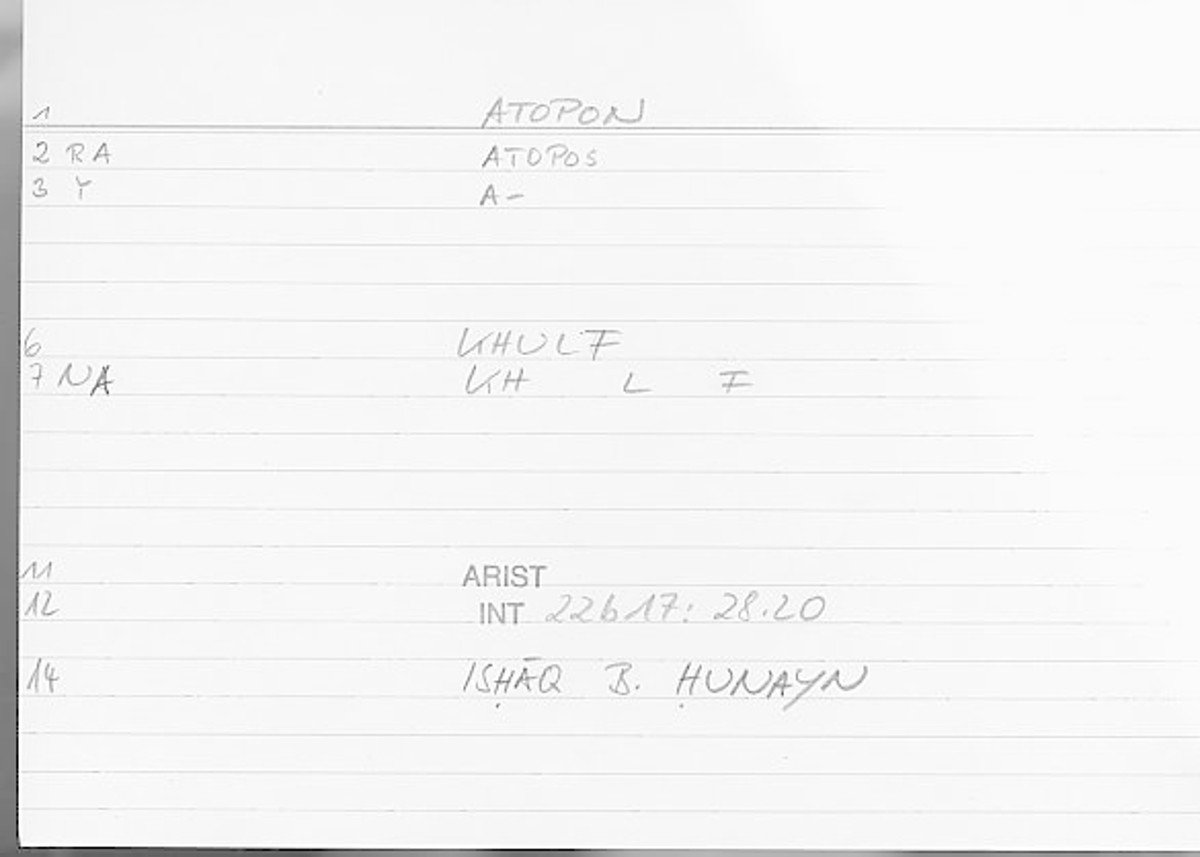 1 ATOPON
2 RA ATOPOS
3 Y A-
6 KHULF
7 NA KH L F
11 ARIST
12 INT 22b17: 28.20
14 ISḤĀQ B. ḤUNAYN